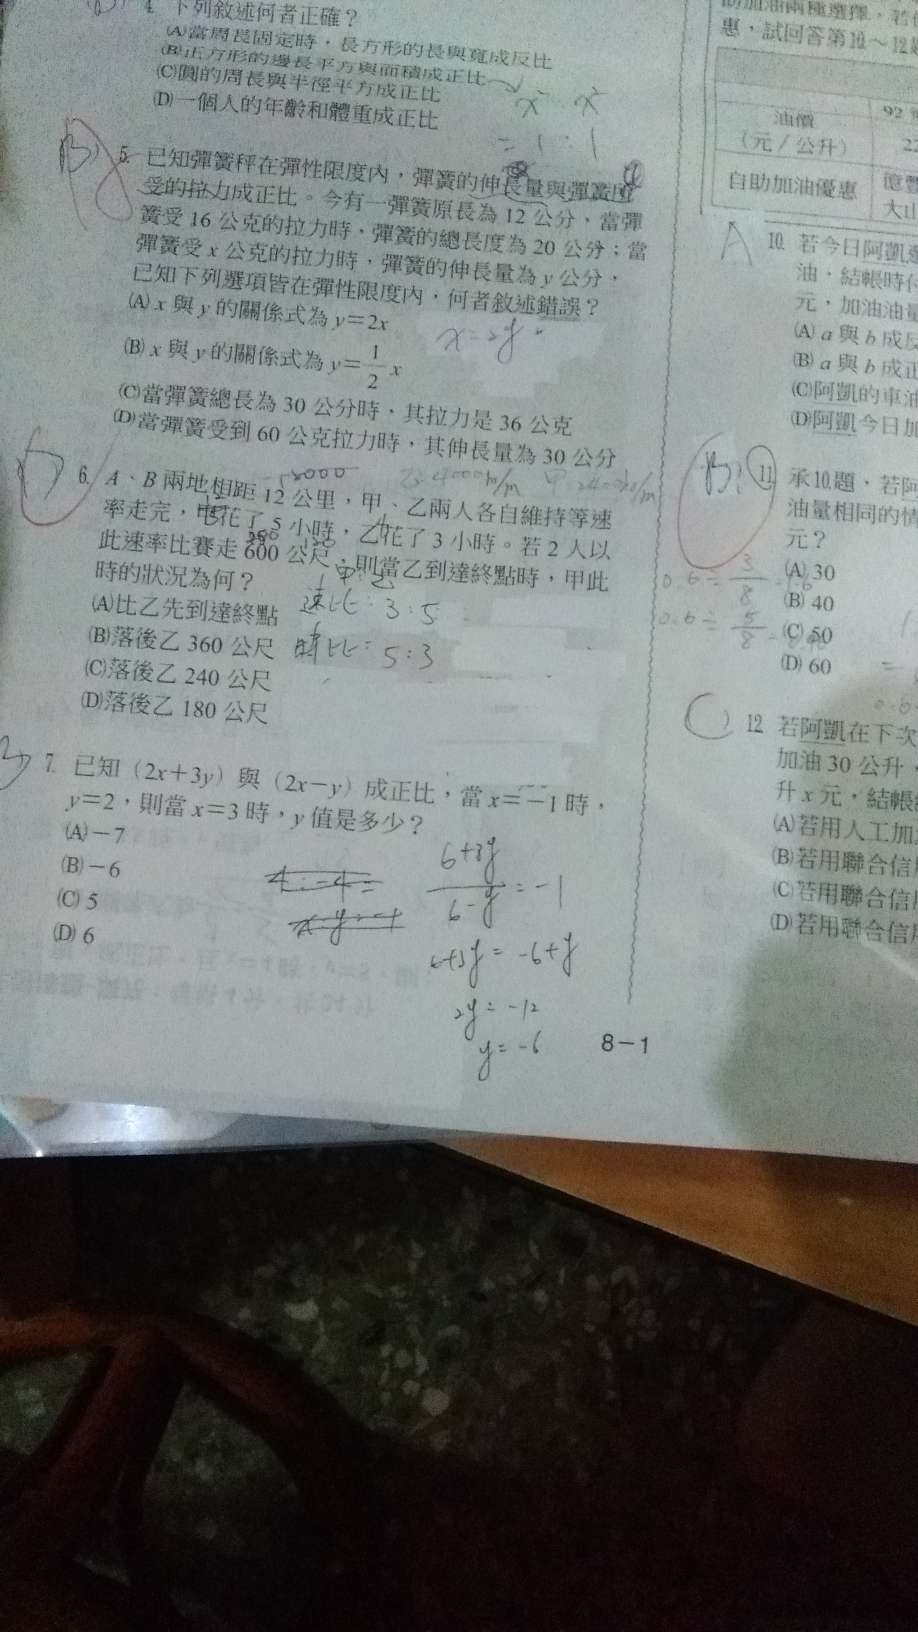 4. 下列敘述何者正確？
(A)當周長固定時，長方形的長與寬成反比
(B)正方形的邊長平方與面積成正比
(C)圓的周長與半徑平方成正比
(D)一個人的年齡和體重成正比
x² x²
= 1 : 1
B
5. 已知彈簧秤在彈性限度內，彈簧的伸長量與彈簧所
受的拉力成正比。今有一彈簧原長為 12 公分，當彈
簧受 16 公克的拉力時，彈簧的總長度為 20 公分；當
彈簧受 x 公克的拉力時，彈簧的伸長量為 y 公分，
已知下列選項皆在彈性限度內，何者敘述錯誤？
(A) x 與 y 的關係式為 y＝2x
x=2y
(B) x 與 y 的關係式為 y＝1/2 x
(C)當彈簧總長為 30 公分時，其拉力是 36 公克
(D)當彈簧受到 60 公克拉力時，其伸長量為 30 公分
12000
6. A、B 兩地相距 12 公里，甲、乙兩人各自維持等速
率走完，甲花了 5 小時，乙花了 3 小時。若 2 人以
此速率比賽走 600 公尺，則當乙到達終點時，甲此
時的狀況為何？
甲:乙
(A)比乙先到達終點
速比：3:5
(B)落後乙 360 公尺
時比：5:3
(C)落後乙 240 公尺
(D)落後乙 180 公尺
7. 已知（2x＋3y）與（2x－y）成正比，當 x＝－1 時，
y＝2，則當 x＝3 時，y 值是多少？
(A)－7
(B)－6
(C) 5
(D) 6
6+3y
6-y
= -1
6+3y = -6+y
2y = -12
y = -6
8－1
惠，試回答第10～12
油價
（元／公升）
92
自助加油優惠
大山
A
10. 若今日阿凱
油，結帳時付
元，加油油量
(A) a 與 b 成反
(B) a 與 b 成正
(C)阿凱的車油
(D)阿凱今日加
B
11. 承10.題，若阿
油量相同的情
元？
(A) 30
(B) 40
(C) 50
(D) 60
0.6 = 3/8
0.6 = 5/8
C
12. 若阿凱在下次
加油 30 公升，
升 x 元，結帳
(A)若用人工加
(B)若用聯合信
(C)若用聯合信
(D)若用聯合信